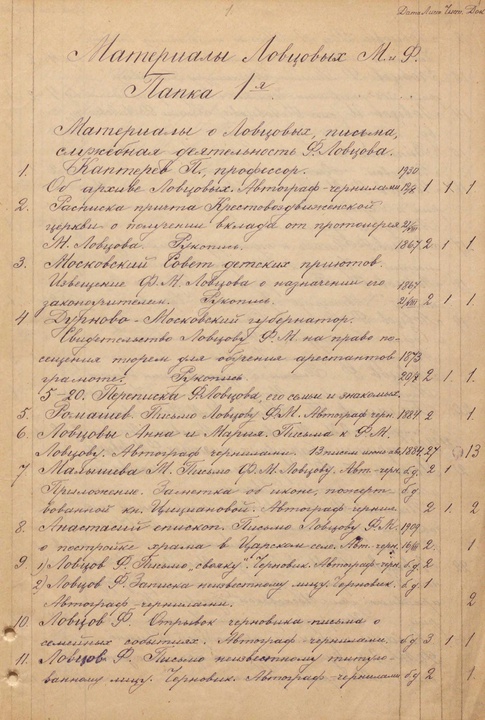 1
Дата Лист. Чист. Док
Материалы Ловцовых М. и Ф.
Папка 1я
Материалы о Ловцовых, письма,
служебная деятельность Ф. Ловцова.
1. Каптерев П., профессор. 1930
Об архиве Ловцовых. Автограф чернилами 1 1 1.
2. Расписка причта Крестовоздвиженской
церкви о получении вклада от протоиерея
М. Ловцова Рукопись. 1867 2 1 1.
3. Московский Совет детских приютов.
Извещение Ф. М. Ловцова о назначении его 1867
законоучителем. Рукопись 2 1 1.
4 Дурново - Московский губернатор.
Свидетельство Ловцову Ф.М. на право по-
сещения тюрем для обучения арестантов 1873
грамоте. Рукопись 2 1 1.
5-20. Переписка Ф. Ловцова, его семьи и знакомых.
5. Ромашев Письмо Ловцову Ф.М. Автограф черн. 1884 2 1.
6. Ловцовы Анна и Мария. Письма к Ф. М.
Ловцову. Автограф чернилами. 13 писем 1884 27 13
7 Малышева М. Письмо Ф. М. Ловцову. Авт. черн. б.д. 2 1
Приложение. Заметка об иконе, пожерт- б.д.
вованной кн. Цициановой. Автограф чернил. 2 1. 2
8. Анастасий епископ. Письмо Ловцову Ф.М. 1909
о постройке храма в Царском селе. Авт. черн. 2 1
9 1) Ловцов Ф. Письмо „свояку". Черновик. Автограф черн. б.д. 2
2) Ловцов Ф. Записка неизвестному лицу. Черновик. б.д. 1
Автограф чернилами. 2
10. Ловцов Ф. Отрывок черновика письма о
семейных событиях. Автограф чернилами б.д. 3 1 1
11. Ловцов Ф. Письмо неизвестному титуло-
ванному лицу. Черновик. Автограф чернилами б.д. 2 1.